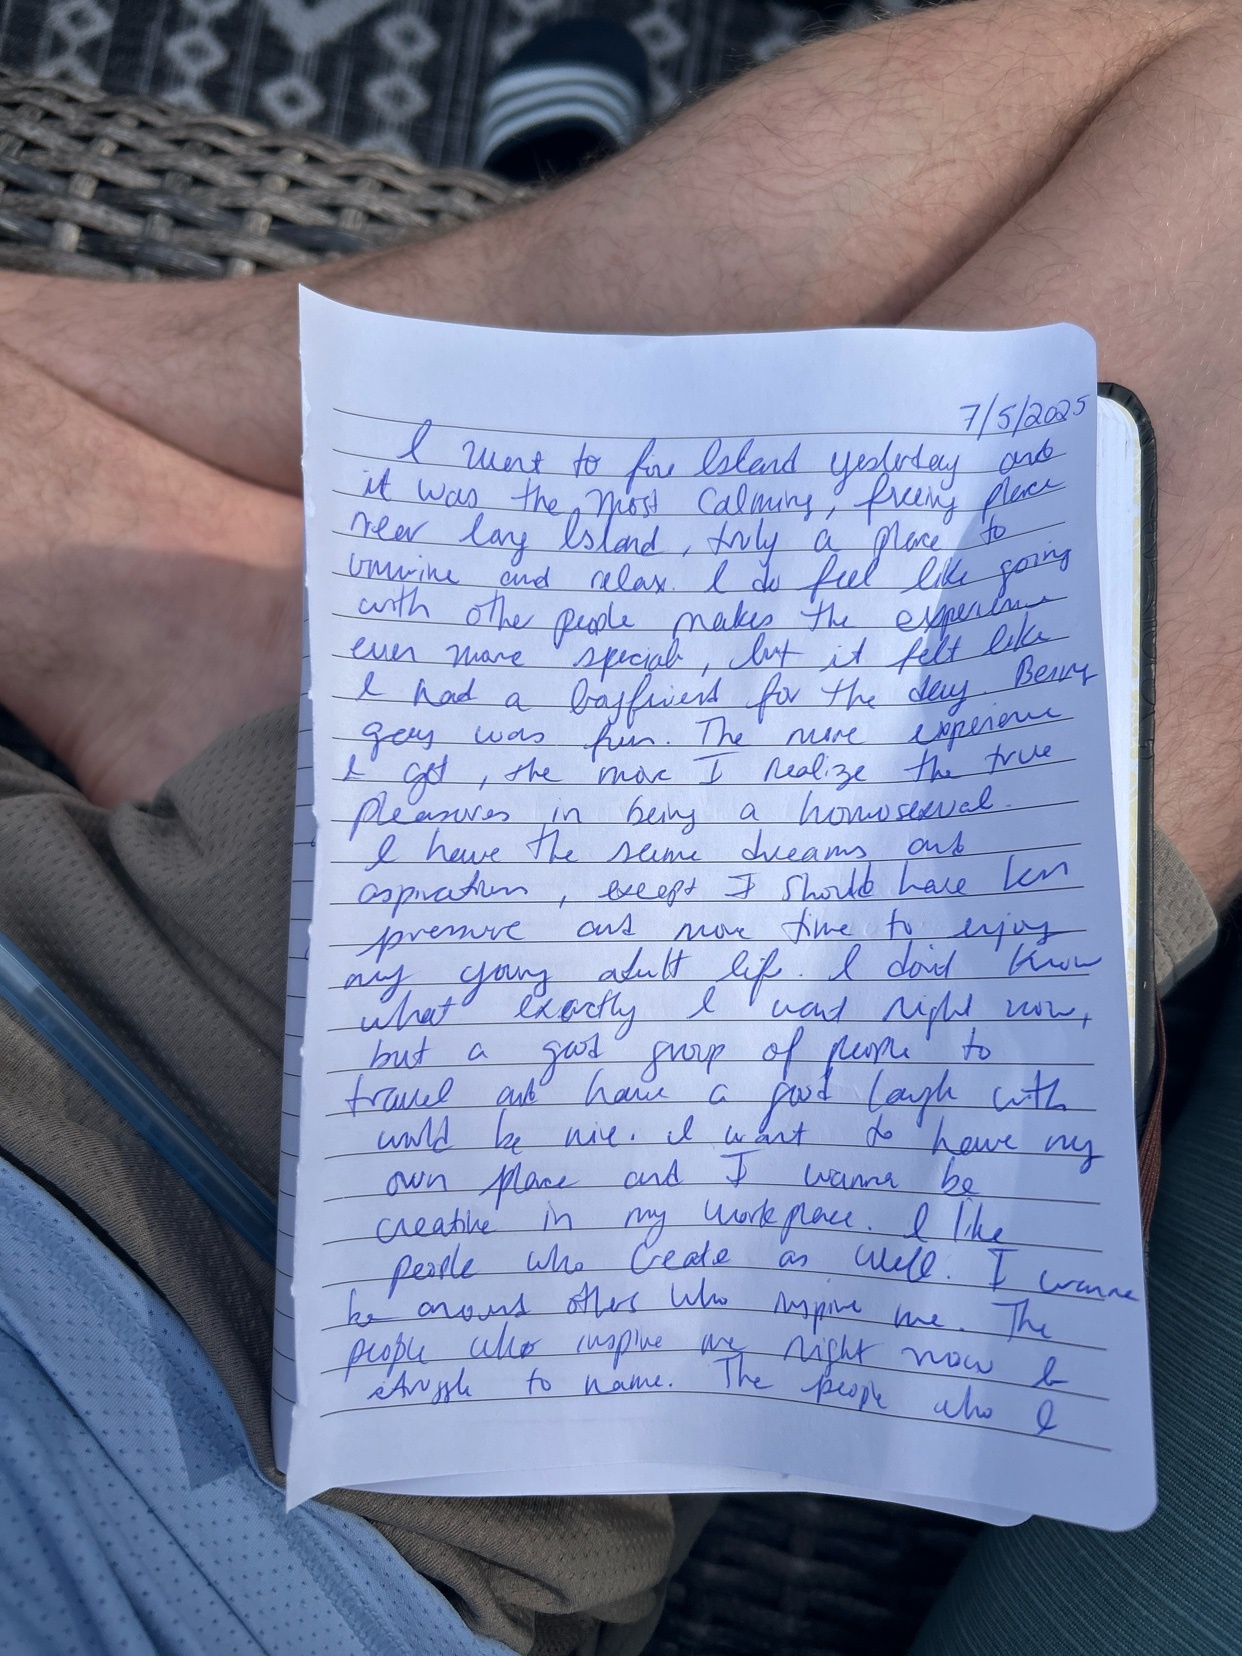 7/5/2025
I went to fire Island yesterday and
it was the most calming, freeing place
near long Island, truly a place to
unwine and relax. I do feel like going
with other people makes the experience
even more special, but it felt like
I had a boyfriend for the day. Being
gay was fun. The more experience
I get, the more I realize the true
pleasures in being a homosexual.
I have the same dreams and
aspirations, except I should have less
pressure and more time to enjoy
my young adult life. I don't know
what exactly I want right now,
but a good group of people to
travel and have a good laugh with
would be nice. I want to have my
own place and I wanna be
creative in my workplace. I like
people who create as well. I wanna
be around others who inspire me. The
people who inspire me right now I
struggle to name. The people who I